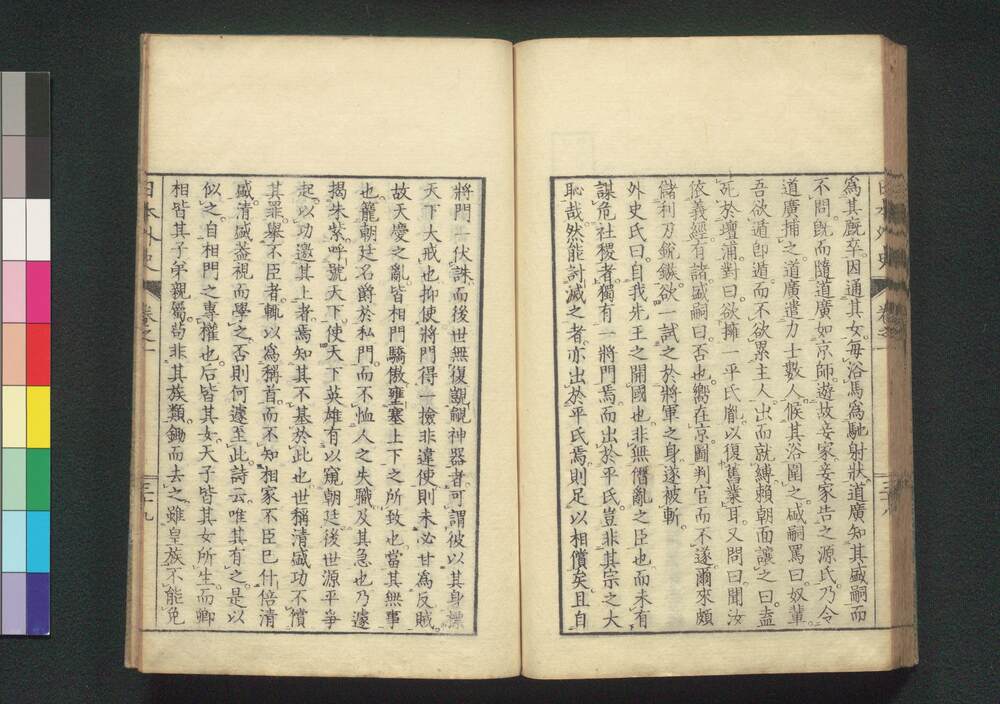 爲其厩卒因通其女毎浴馬爲馳射狀道廣知其盛嗣而
不問既而隨道廣如京師遊故妾家妾家告之源氏乃令
道廣捕之道廣遣力士數人候其浴圍之盛嗣罵曰奴輩
吾欲遁即遁而不欲累主人出而就縛賴朝面讓之曰盍
死於壇浦對曰欲擁一平氏胤以復舊業耳又問曰聞汝
依義經有諸盛嗣曰否也嚮在京圖判官而不遂爾來頗
儲利刃銳鏃欲一試之於將軍之身遂被斬
外史氏曰自我先王之開國也非無僭亂之臣也而未有
謀危社稷者獨有一將門焉而出於平氏豈非其宗之大
恥哉然能討滅之者亦出於平氏焉則足以相償矣且自
日本外史 卷之一 三十八
將門一伏誅而後世無復覬覦神器者可謂彼以其身標
天下大戒也抑使將門得一撿非違使則未必甘爲反賊
故天慶之亂皆相門驕傲壅塞上下之所致也當其無事
也籠朝廷名爵於私門而不恤人之失職及其急也乃遽
揭朱紫呼號天下使天下英雄有以窺朝廷後世源平爭
起以功邀其上者焉知其不基於此也世稱清盛功不償
其罪舉不臣者輒以爲稱首而不知相家不臣已什倍清
盛清盛蓋視而學之否則何遽至此詩云唯其有之是以
似之自相門之專權也后皆其女天子皆其女所生而卿
相皆其子弟親屬苟非其族類鋤而去之雖皇族不能免
日本外史 卷之一 三十九